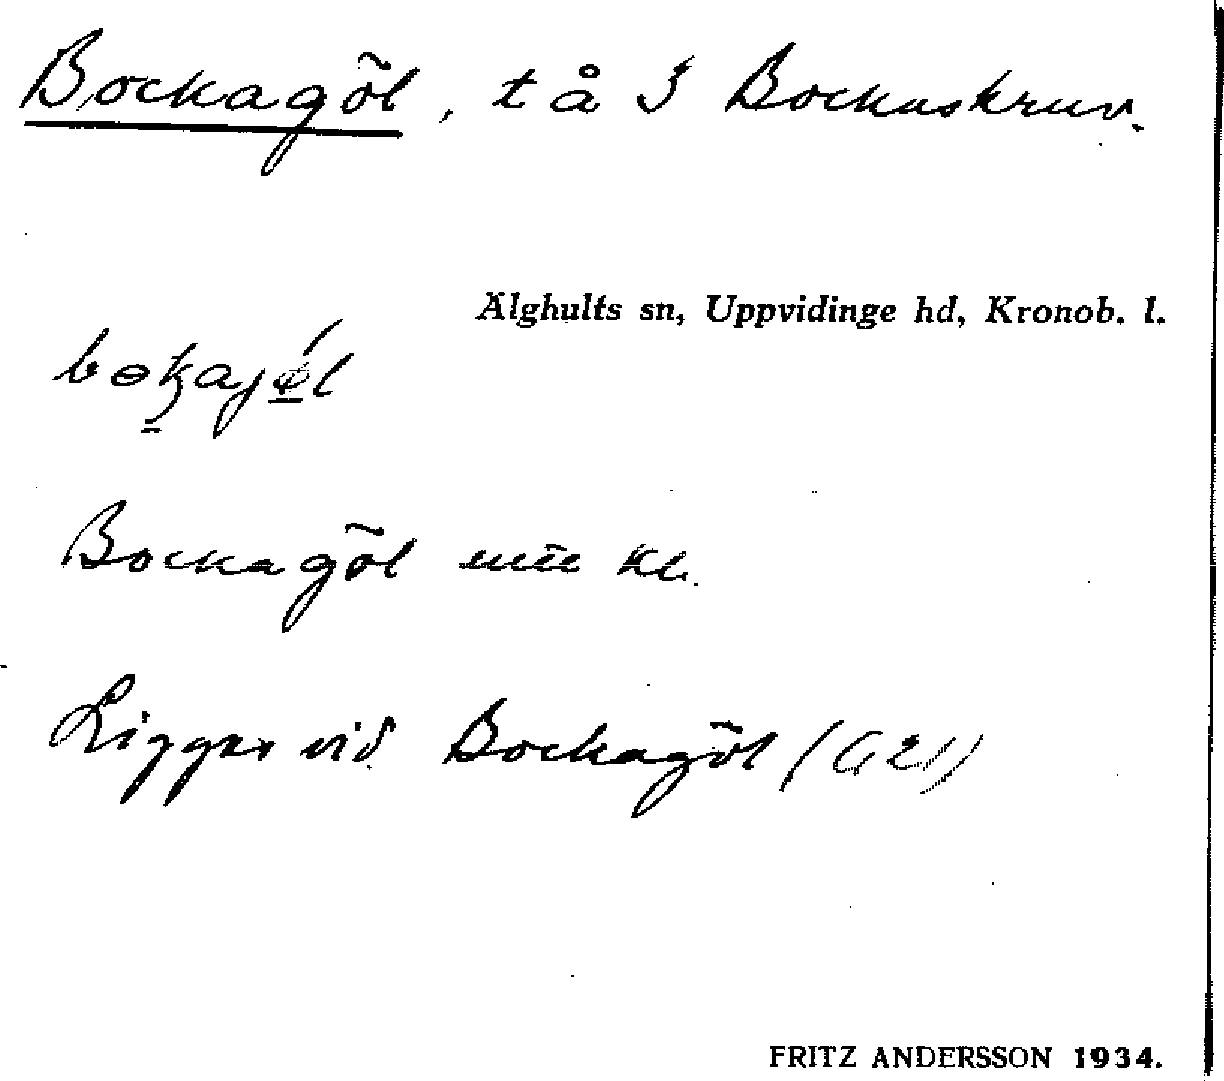 Bockagöl, t å 3 Bockaskruv.
Älghults sn, Uppvidinge hd, Kronob. l.
Bockagöl
Ligger vid Bockagöl (G 21)
FRITZ ANDERSSON 1934.